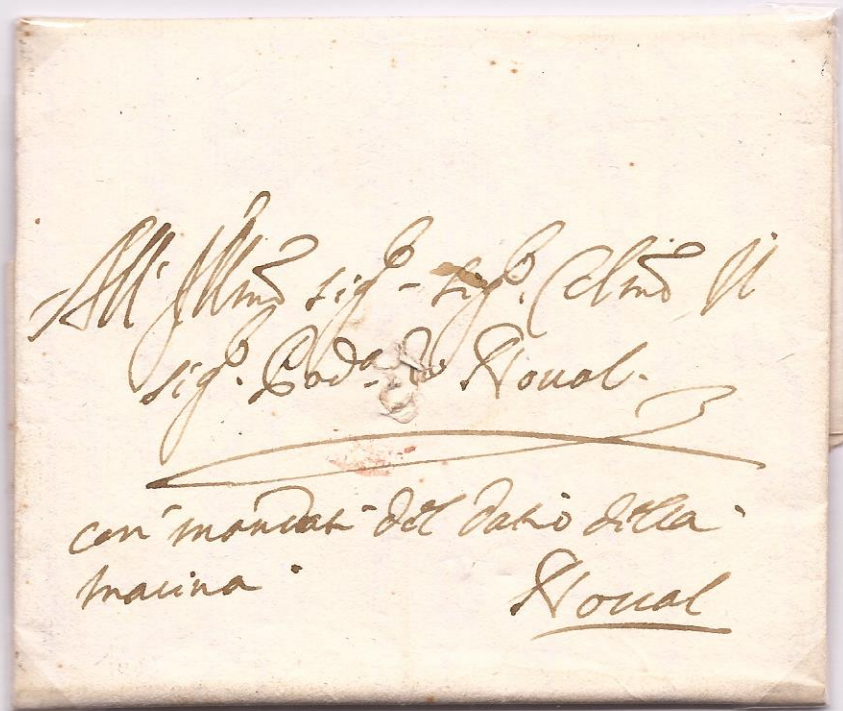 All' Illmo sigr - sigr. Colmo Il
sigr. Podà di Noual.
con mandati del datio della
macina
Noual